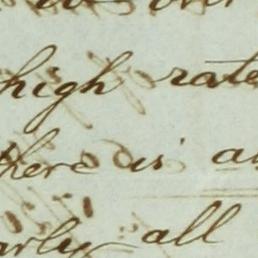 high rate
there is a
arly all